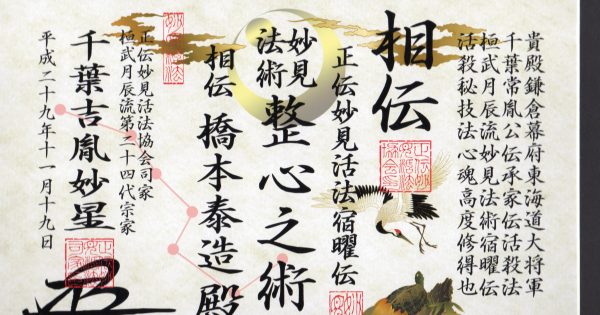 相伝
貴殿鎌倉幕府東海道大将軍
千葉常胤公伝承家伝活殺法
桓武月辰流妙見法術宿曜伝
活殺秘技法心魂高度修得也
正伝妙見活法宿曜伝
妙見法術
整心之術
相伝 橋本泰造殿
正伝妙見活法協会司家
桓武月辰流第二十四代宗家
千葉吉胤妙星
平成二十九年十一月十九日